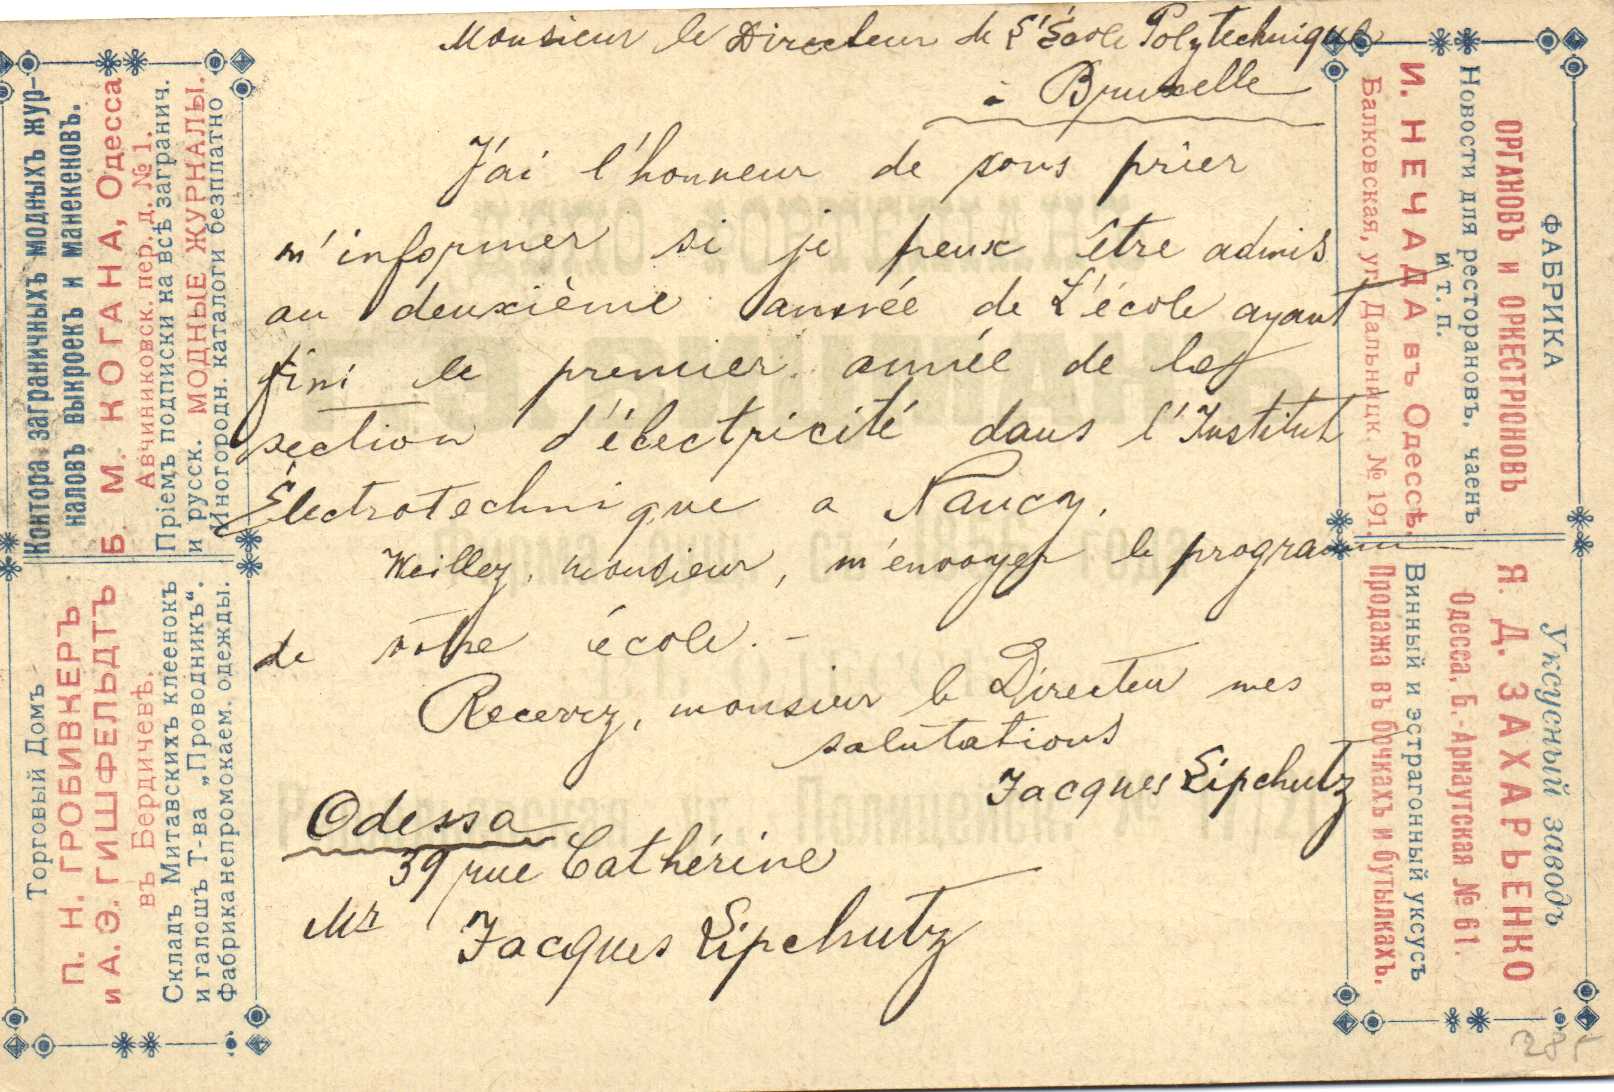 Monsieur le Directeur de l'École Polytechnique
à Bruxelle
J'ai l'honneur de vous prier
m'informer si je peux être admis
au deuxième année de L'école ayant
fini le premier année de la
section d'électricité dans l'Institut
Électrotechnique a Nancy.
Weillez, monsieur, m'envoyer le programm
de vôtre école. -
Recevez, monsieur le Directeur mes
salutations
Jacques Lipchutz
Odessa
39 rue Cathérine
Mr Jacques Lipchutz
Контора заграничныхъ модныхъ жур-
наловъ выкроекъ и манекеновъ.
Б. М. КОГАНА, Одесса
Авчинниковск. пер. д. № 1.
Пріемъ подписки на всѣ загранич.
и русск. МОДНЫЕ ЖУРНАЛЫ.
Иногородн. каталоги безплатно
Торговый Домъ
П. Н. ГРОБИВКЕРЪ
и А. Э. ГИШФЕЛЬДТЪ
въ Бердичевѣ.
Складъ Митавскихъ клеенокъ
и галошъ Т-ва „Проводникъ“.
Фабрика непромокаем. одежды.
ФАБРИКА
ОРГАНОВЪ и ОРКЕСТРІОНОВЪ
Новости для ресторановъ, чаенъ
и т. п.
И. НЕЧАДА въ Одессѣ.
Балковская, уг. Дальницк № 191.
Уксусный заводъ
Я. Д. ЗАХАРЬЕНКО
Одесса, Б.-Арнаутская № 61.
Винный и эстрагонный уксусъ
Продажа въ бочкахъ и бутылкахъ.
285